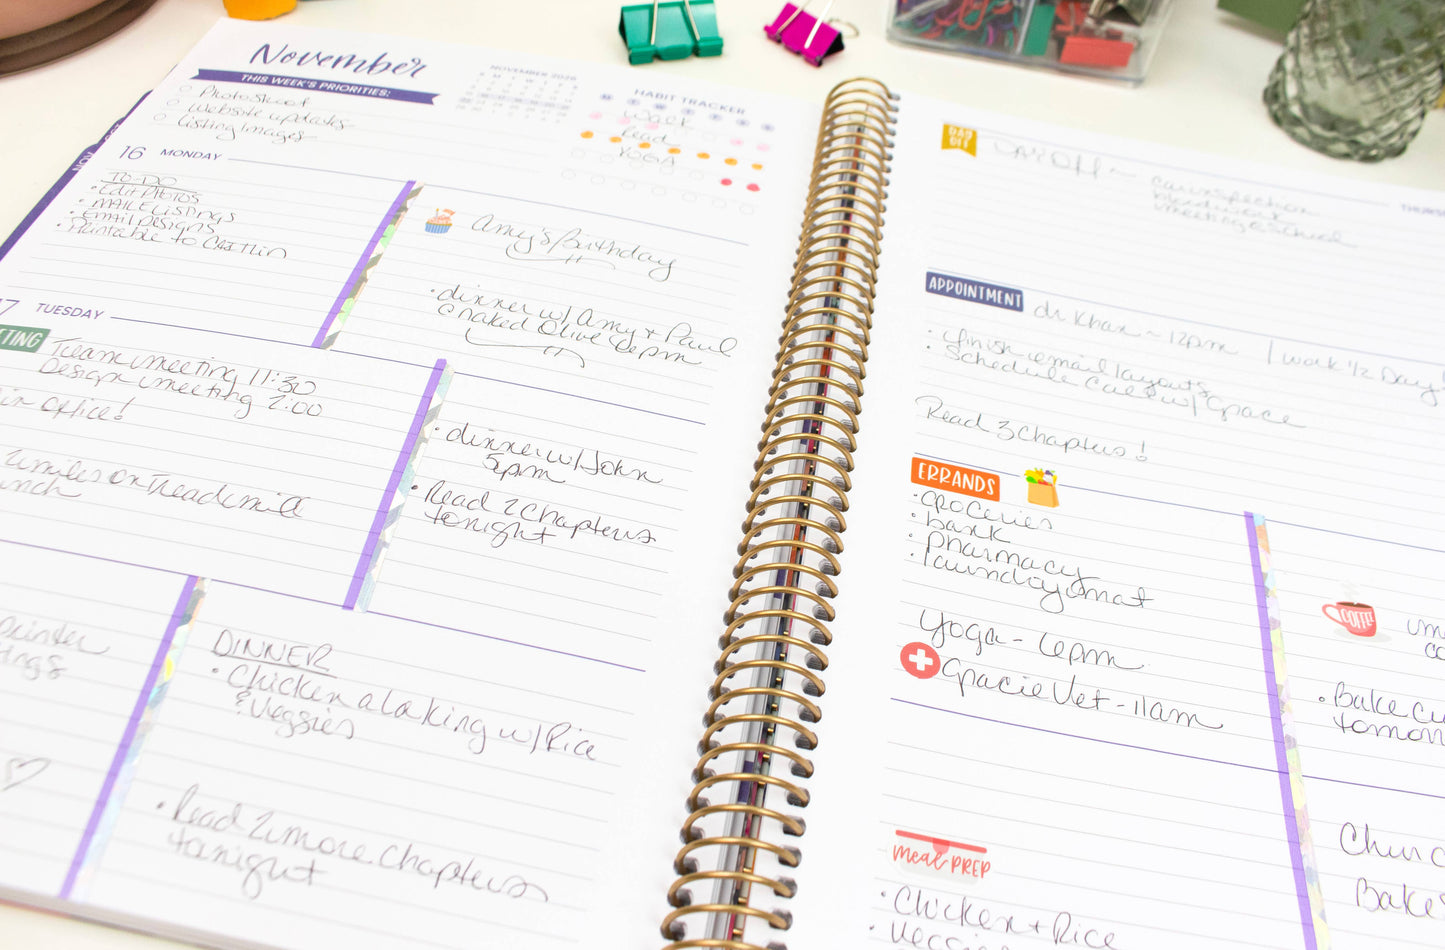 November
THIS WEEK'S PRIORITIES:
Photoshoot
Website updates
Listing Images
NOVEMBER 2026
S M T W T F S
HABIT TRACKER
Walk
Read
YOGA
NOV
16 MONDAY
TO-DO
• Edit Photos
• Email Designs
• Printable to Caitlin
Amy's Birthday
• dinner w/ Amy + Paul
@ naked Olive 6pm
17 TUESDAY
Team meeting 11:30
Design meeting 2:00
in Office!
2 miles on Treadmill
• dinner w/ John
5pm
• Read 2 chapters
tonight
printer
DINNER
• Chicken a la king w/ Rice
& Veggies
• Read 2 more chapters
tonight
DAY
OFF
DAY OFF ~
THURS
APPOINTMENT
dr. Khan ~ 12pm | work 1/2 Day!
• finish email layouts
• Schedule Call w/ Grace
Read 3 chapters!
ERRANDS
• Groceries
• bank
• pharmacy
• laundry omat
Yoga - 6pm
Gracie Vet - 11am
COFFEE
• Bake
Meal PREP
• Chicken + Rice